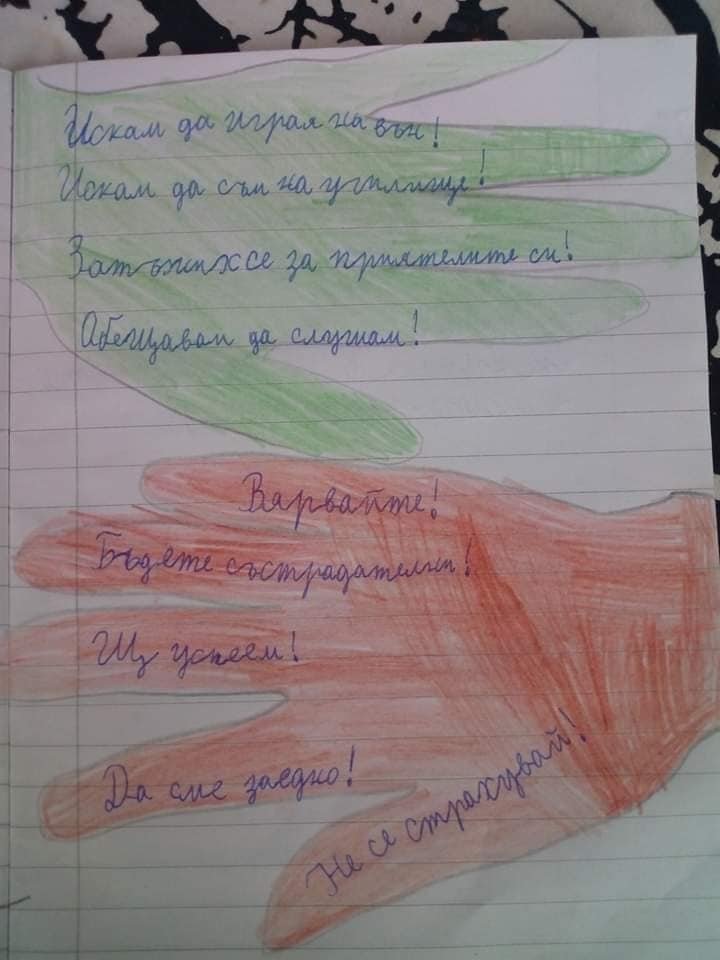 Искам да играя на вън!
Искам да съм на училище!
Затъжих се за приятелите си!
Обещавам да слушам!
Вярвайте!
Бъдете състрадателни!
Щ успеем!
Да сме заедно!
Не се страхувай!